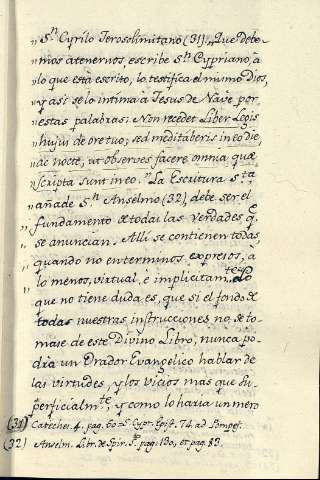 „Sn. Cyrilo Jerosolimitano (31). „Que debe-
„mos atenernos, escribe Sn. Cypriano, à
„lo que està escrito, lo testifica el mismo Dios,
„y asi se lo intima à Jesus de Nave por
„estas palabras: Non recedet Liber Legis
„hujus de ore tuo; sed meditaberis in eo die,
„ac nocte, ut observes facere omnia quæ
„scripta sunt in eo. „La Escritura Sta.
„añade Sn. Anselmo (32), debe ser el
„fundamento de todas las verdades, qe.
„se anuncian. Alli se contienen todas,
„quando no en terminos expresos, a
lo menos, virtual, è implicitamte. Lo
que no tiene duda es, que si el fondo de
todas nuestras instrucciones no se to-
mase de este Divino Libro, nunca po-
dria un Orador Evangelico hablar de
las virtudes, y los vicios mas que su-
perficialmte., y como lo haria un mero
(31) Cateches. 4. pag. 60 = S. Cypr. Epist. 74. ad Pompej.
(32) Anselm. Libr. de Spir. Sto. pag. 130, et pag. 83.